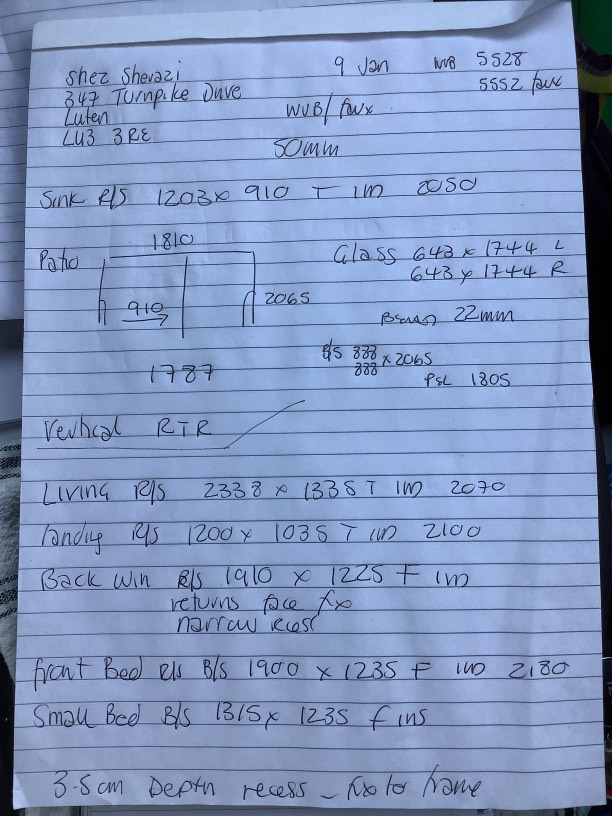 Shez Shevazi 9 Jan WVB 5528
347 Turnpike Drive 5552 faux
Luten WVB/faux
LU3 3RE
50mm
Sink R/S 1203 x 910 T 1m 2050
1810
Patio Glass 643 x 1744 L
643 x 1744 R
910 2065
22mm
B/S 888 x 2065
888
1787 PSL 1805
Vertical RTR
Living R/S 2338 x 1335 T 1m 2070
landing R/S 1200 x 1035 T 1m 2100
Back Win R/S 1910 x 1225 F 1m
returns face fix
narrow recess
front Bed R/S B/S 1900 x 1235 F 1m 2180
Small Bed B/S 1315 x 1235 F ins
3.5cm Depth recess - fix to frame